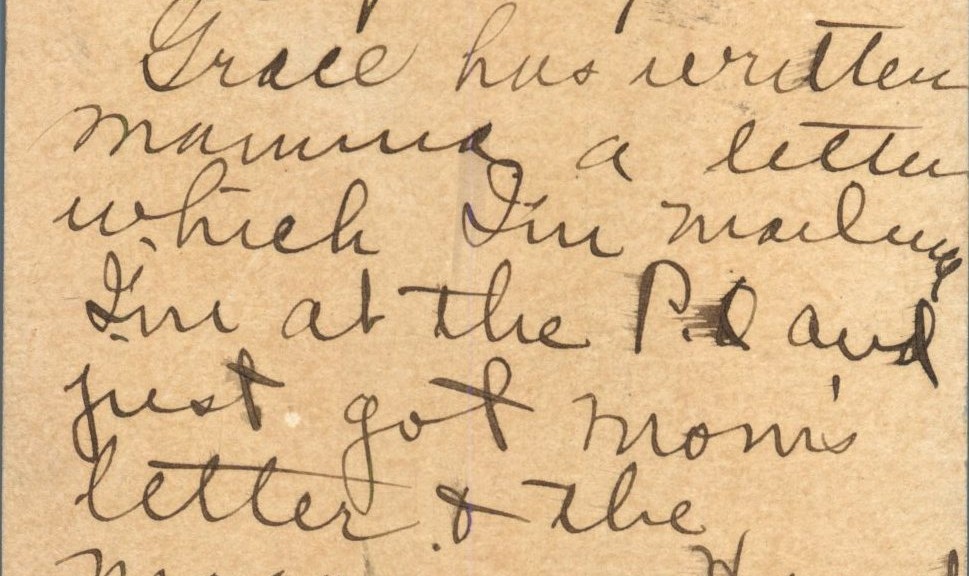 Grace has written
mamma a letter
which I'm mailing
I'm at the P.O and
just got mom's
letter & the